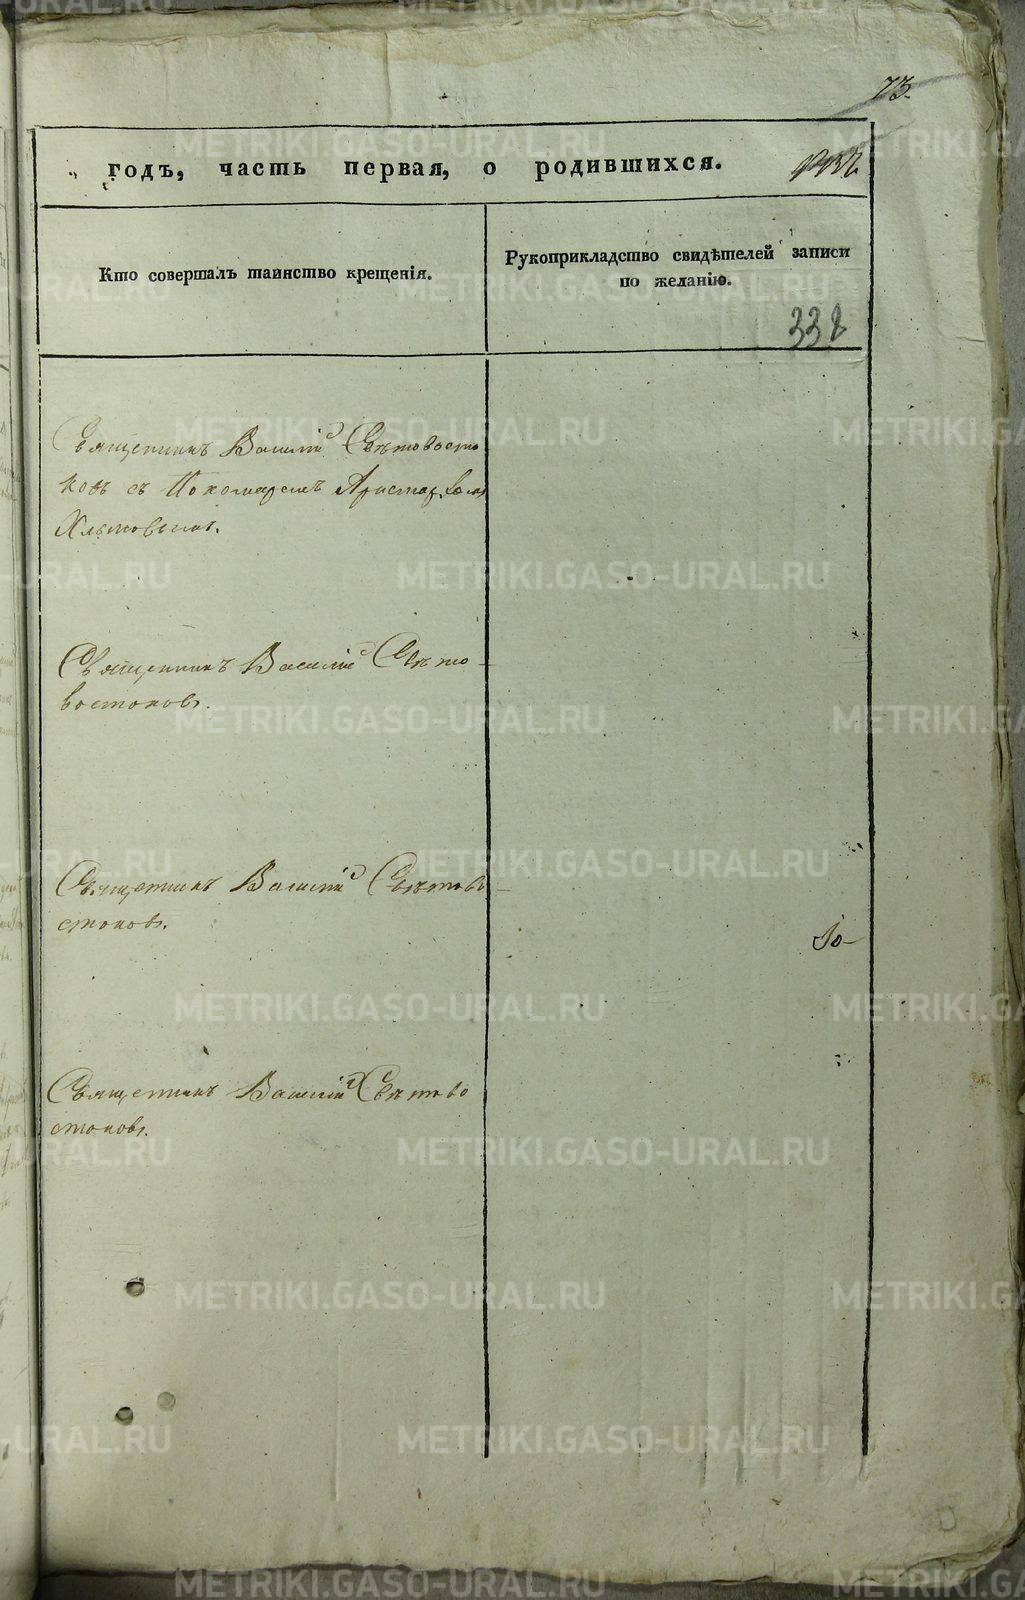 73.
годъ, часть первая, о родившихся.
Кто совершалъ таинство крещенія.
Рукоприкладство свидѣтелей записи
по желанію.
338
Священникъ Василій Свѣтовосто
ковъ съ Пономаремъ Аристархомъ
Хлѣтовымъ.
Священникъ Василій Свѣто-
востоковъ.
Священникъ Василій Свѣтово-
стоковъ.
Священникъ Василій Свѣтово
стоковъ.
METRIKI.GASO-URAL.RU